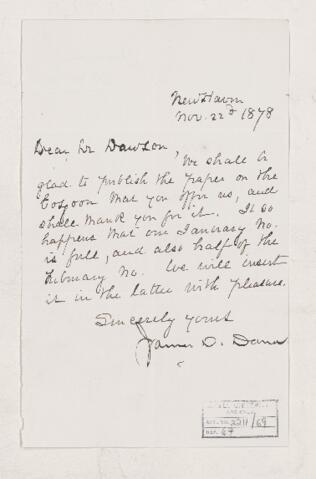 New Haven
Nov. 22d 1878
Dear Dr Dawson,
We shall be
glad to publish the paper on the
Eozoon that you offer us, and
shall thank you for it. It so
happens that our January No.
is full, and also half of the
February No. We will insert
it in the latter with pleasure.
Sincerely yours
James D. Dana
ACC. NO. 2211/69
REF. 67